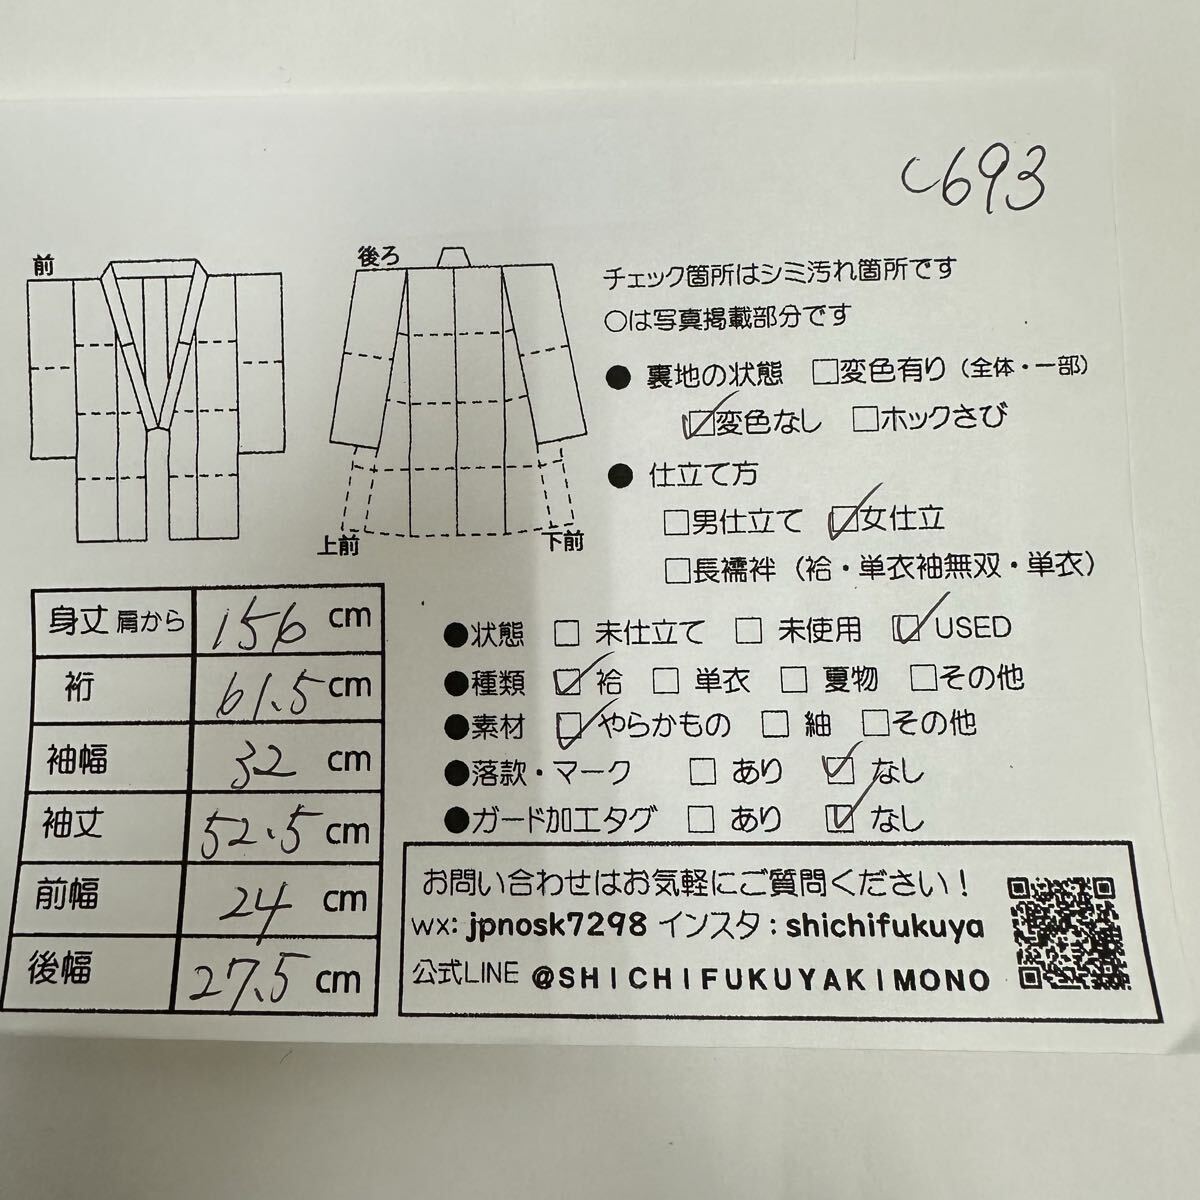 C693
前
後ろ
上前
下前
チェック箇所はシミ汚れ箇所です
○は写真掲載部分です
● 裏地の状態 □変色有り（全体・一部）
☑変色なし □ホックさび
● 仕立て方
□男仕立て ☑女仕立
□長襦袢（袷・単衣袖無双・単衣）
●状態 □ 未仕立て □ 未使用 ☑ USED
●種類 ☑ 袷 □ 単衣 □ 夏物 □その他
●素材 ☑やらかもの □ 紬 □その他
●落款・マーク □ あり ☑ なし
●ガード加工タグ □ あり ☑ なし
身丈 肩から 156 cm
裄 61.5 cm
袖幅 32 cm
袖丈 52.5 cm
前幅 24 cm
後幅 27.5 cm
お問い合わせはお気軽にご質問ください！
wx: jpnosk7298 インスタ : shichifukuya
公式LINE @SHICHIFUKUYAKIMONO